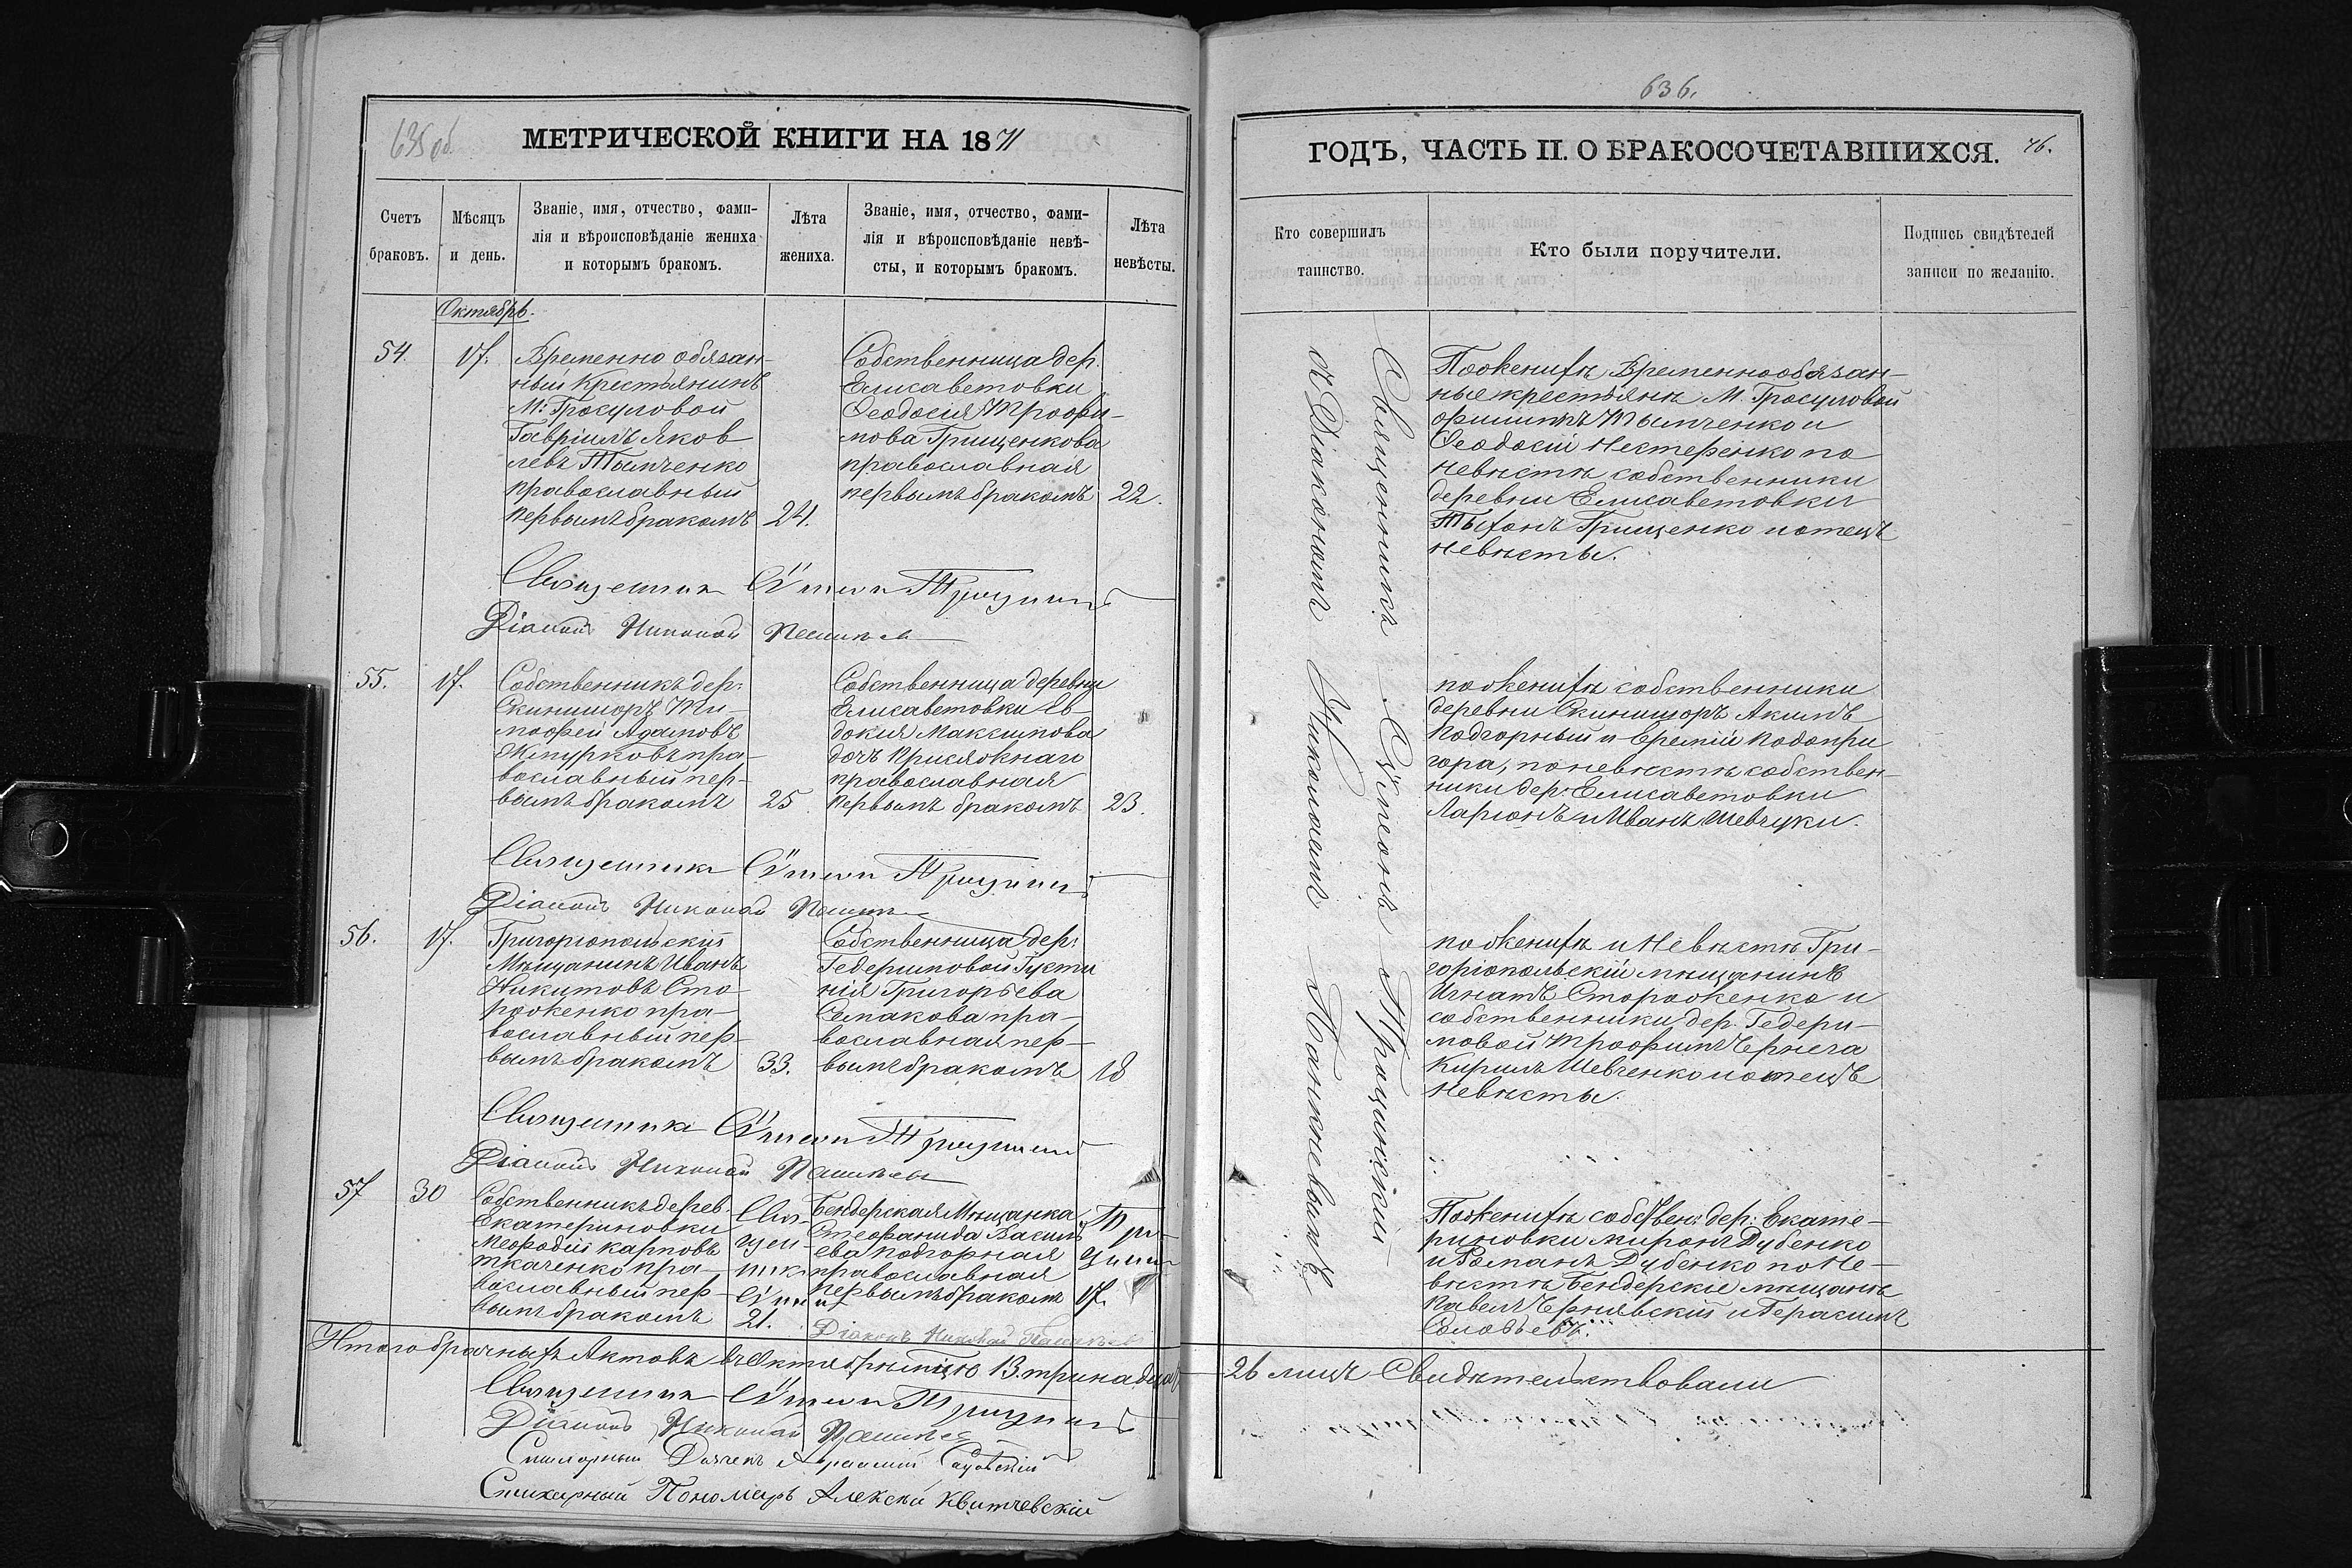 635 об.
МЕТРИЧЕСКОЙ КНИГИ НА 1871
Счетъ браковъ.
Мѣсяцъ и день.
Званіе, имя, отчество, фами-
лія и вѣроисповѣданіе жениха
и которымъ бракомъ.
Лѣта жениха.
Званіе, имя, отчество, фами-
лія и вѣроисповѣданіе невѣ-
сты, и которымъ бракомъ.
Лѣта невѣсты.
Октябрь.
54.
17.
Временно обязан-
ный крестьянинъ
М: Гросуловой
Гавріилъ Яков
левъ Тымченко
православный
первымъ бракомъ
24.
Собственница дер.
Елисаветовки
Феодосія Трофи-
мова Грищенкова
православная
первымъ бракомъ
22.
Священникъ Сѵмеонъ Троцинскій
Діаконъ Николай
55.
17.
Собственникъ дер.
Скиншоръ Ти-
мофей Адамовъ
православный пер-
вымъ бракомъ
25
Собственница деревни
Елисаветовки Ев
докия Максимова
дочь Присяжнаго
православная
первымъ бракомъ
23.
Священникъ Сѵмеонъ Троцинскій
Діаконъ Николай
56.
17.
Григоріопольскій
Мѣщанинъ Иванъ
Никитовъ Сто-
роженко пра-
вославный пер-
вымъ бракомъ
33.
Собственница дер:
Гедеримовой Густи
нія Григорьева
пра-
вославная пер-
вымъ бракомъ
18
Священникъ Сѵмеонъ Троцинскій
Діаконъ Николай
57
30
Собственникъ дерев.
Екатериновки
Мефодій Карповъ
Ткаченко пра-
вославный пер-
вымъ бракомъ
21.
Бендерская Мѣщанка
Стефанида Василь
ева Подгорная
православная
первымъ бракомъ
17.
Священникъ Сѵмеонъ Троцинскій
Діаконъ Николай
Итого брачныхъ Актовъ въ Октябрѣ мцѣ 13. тринадцать
Священникъ Сѵмеонъ Троцинскій
Діаконъ Николай
Стихарный Дьячекъ
Стихарный Пономарь Алексѣй Квитчевскій
636.
ГОДЪ, ЧАСТЬ II. О БРАКОСОЧЕТАВШИХСЯ.
76.
Кто совершилъ таинство.
Кто были поручители.
Подпись свидѣтелей записи по желанію.
Священникъ Сѵмеонъ Троцинскій
съ Діакономъ Николаемъ
По женихѣ Временнообязан-
ные крестьяне М. Гросуловой
Филиппъ Тымченко и
Феодосій Нестеренко по
невѣстѣ собственники
деревни Елисаветовки
Тихонъ Грищенко и отецъ
невѣсты.
по женихѣ собственники
деревни Скиншоръ Акимъ
Подгорный и Еремій Подопри
гора, по невѣстѣ собствен-
ники дер. Елисаветовки
Ларіонъ и Иванъ Шевчуки.
по женихѣ и невѣстѣ Гри-
горіопольскій мѣщанинъ
Игнатъ Стороженко и
собственники дер. Гедери-
мовой Трофимъ Чернега
Кирилъ Шевченко и отецъ
невѣсты.
По женихѣ собствен: дер: Екате-
риновки Миронъ Дубенко
и Романъ Дубенко по не-
вѣстѣ Бендерскіе мѣщане
Павелъ Чернявскій и Герасимъ
Соловьевъ.
26 лицъ Свидѣтельствовали